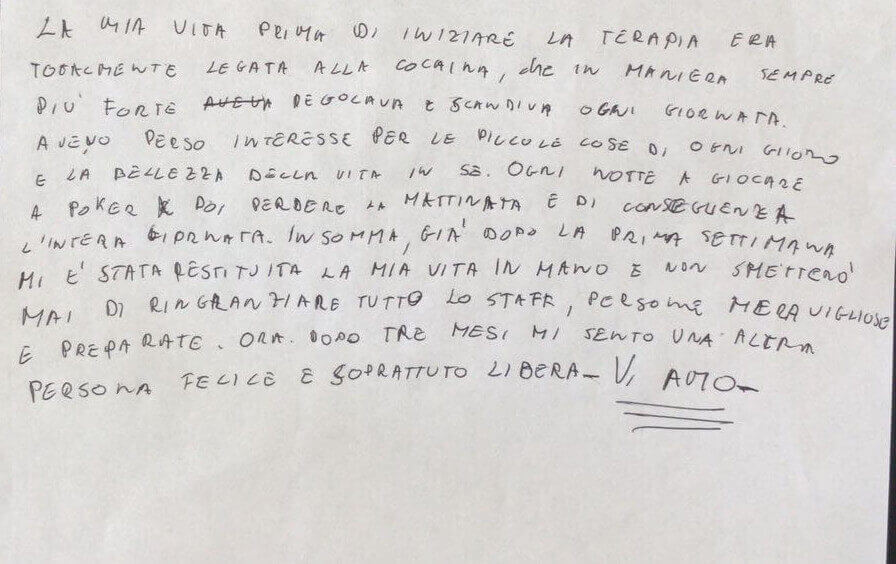 LA MIA VITA PRIMA DI INIZIARE LA TERAPIA ERA
TOTALMENTE LEGATA ALLA COCAINA, che IN MANIERA SEMPRE
PIU' FORTE AVEVA REGOLAVA E SCANDIVA OGNI GIORNATA.
AVEVO PERSO INTERESSE PER LE PICCOLE COSE DI OGNI GIORNO
E LA BELLEZZA DELLA VITA IN SE. OGNI NOTTE A GIOCARE
A POKER X POI PERDERE LA MATTINATA E DI CONSEGUENZA
L'INTERA GIORNATA. INSOMMA, GIA' DOPO LA PRIMA SETTIMANA
MI E' STATA RESTITUITA LA MIA VITA IN MANO E NON SMETTERO'
MAI DI RINGRANZIARE TUTTO LO STAFF, PERSONE MERAVIGLIOSE
E PREPARATE. ORA. DOPO TRE MESI MI SENTO UNA ALTRA
PERSONA FELICE E SOPRATTUTO LIBERA_ VI AMO_